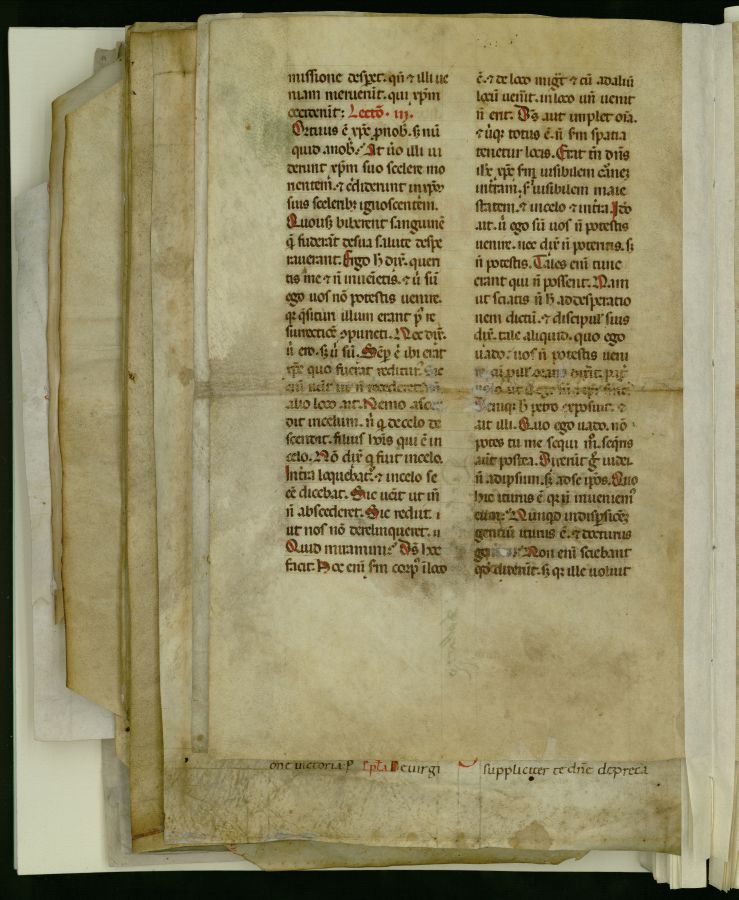 missione desꝑet. qn̄ ⁊ illi ue
niam meruerūt. qui xp̄m
occiderūt: Lectō. iii.
Ortuus ē xp̄c ꝓnob̄. sꝫ nū
quid anob̄. At ūo illi ui
derunt xp̄m suo scelere mo
rientem. ⁊ c̄diderunt inxp̄o
suis scelerib; ignoscentem.
Quousq; biberent sanguinē
q̄ fuderāt desua salute despe
rauerant. Ergo h̄ dix̄. queri
tis me ⁊ n̄ inuēietis. ⁊ ū sū
ego uos nō potestis uenire.
qr q̄situri illum erant p̄ re
surrectiōē ꝯpuncti. Nec dix̄.
ū ero. sꝫ ū sū. Sēp ē ibi erat
xp̄c quo fuerat rediturꝰ. Sic
enī uēit ut n̄ recederet
alio loco ait. Nemo ascen
dit incelum. n̄ q̄ decelo de
scendit. filius hoīs qui ē in
celo. Nō dix̄ q̄ fuit incelo.
Intra loquebat᷑. ⁊ incelo se
eē dicebat. Sic uēit ut īn
n̄ abscederet. Sic rediit. i
ut nos nō derelinqueret.
Quid miramini. Ds̄ hoc
facit. Hoc enī s̄m corpꝰ īloco
ē. ⁊ de loco migāt ⁊ cū adaliū
locū uen̄it. inloco un̄ uenit
n̄ erit. Ds̄ aut implet oīa.
⁊ ubiq; totus ē. n̄ s̄m spatia
tenetur locis. Erat tn̄ dn̄s
ih̄c xp̄c s̄m uisibilem carnē
inťram. s̄ uisibilem maie
statem. ⁊ incelo ⁊ inťra. Ido
ait. ū ego sū uos n̄ potestis
uenire. nec dix̄ n̄ poteritis. sꝫ
n̄ potestis. Tales enī tunc
erant qui n̄ possent. Nam
ut sciatis n̄ h̄ addesperatio
nem dictū. ⁊ discipulꝰ suis
dix̄. tale aliquid. quo ego
uado. uos n̄ potestis ueni
re
Deniq; h̄ petro exposuit. ⁊
ait illi. Quo ego uado. nō
potes tu me sequi m̄. seq̄ris
aūt postea. Dixerūt g̊ iudei.
n̄ adipsum. sꝫ adse ip̄os. Quo
hic iturus ē qr n̄ inueniemꝰ
eum. Nūnqd indispsiōeꝫ
gentiū iturus ē. ⁊ docturus
Non enī sciebant
qd dixerūt. sꝫ qr ille uoluit
one uictoria. ꝑ Ep̄la Deuirgi
suppliciter te dn̄e depreca